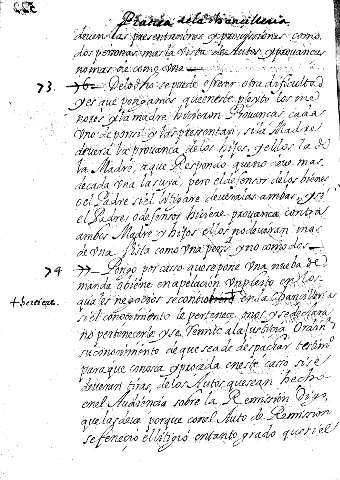 Practica de la Chancilleria
devén las presentaciones y provissiones como
dos personas, mas la vista de los Autos, y provanças
no mas de como una
73. De lo dho se puede ofrecer otra dificultad
y es que pongamos que en este pleyto los me
nores y la madre hicieron Provanças cada
uno de por si y las presentan, si la Madre
deverá la provança de los hijos, y ellos la de
la Madre, a que Respondo que no deve mas
de cada una la suya, pero el defensor de los bienes
o el Padre si el litigare deverá las ambas, y si
el Padre o defensor hiciere provança contra
ambos Madre y hijos ellos no deverán mas
de una vista como una persª y no como dos
74 Pongo por casso que se pone una nueba de
manda o biene en apelacion un pleyto en los
quales negocios se
+ hiciere
en la Chancilleria
si el conocimiento le pertenece, o no, y se declara
no pertenecerle y se Remite a la Justicia Ordinª
su conocimiento de que se a de despachar
para que conosca y proceda en este casso si se
deverán tiras, de los Autos que sean hecho
en el Audiencia sobre la Remission Digo,
que las deve porque con el Auto de Remission
se feneció el litigio en tanto grado que si el